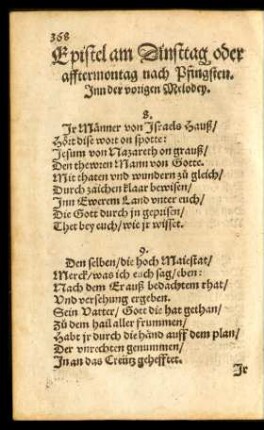 368
Epistel am Dinsttag oder
afftermontag nach Pfingsten.
Inn der vorigen Melodey.
8.
Ir Männer von Israels Hauß/
Hört dise wort on spotte:
Jesum von Nazareth on grauß/
Den thewren Mann von Gotte.
Mit thaten vnd wundern zů gleich/
Durch zaichen klaar bewisen/
Inn Ewerem Land vnter euch/
Die Gott durch jn geprisen/
Thet bey euch/wie jr wisset.
9.
Den selben/die hoch Maiestat/
Merck/was ich euch sag/eben:
Nach dem Er auß bedachtem rhat/
Vnd versehung ergeben.
Sein Vatter/Gott die hat gethan/
Zů dem hail aller frummen/
Habt jr durch die händ auff dem plan/
Der vnrechten genummen/
In an das Creütz gehefftet.
Ir